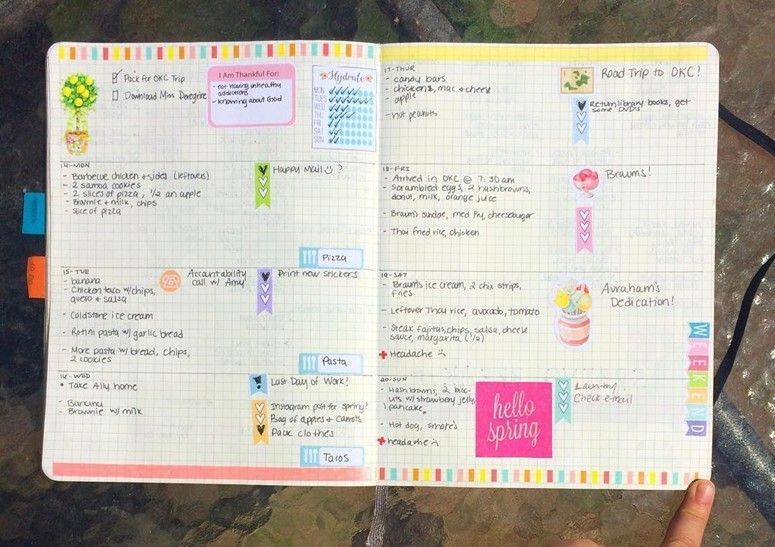 Pack for OKC Trip
Download Miss Peregrine
I Am Thankful For:
- not having unhealthy
addictions
- knowing about God
Hydrate
MON
TUES
WED
THU
FRI
SAT
SUN
14-MON
- Barbecue chicken + sides (leftovers)
- 2 samoa cookies
- 2 slices of pizza, 1/2 an apple
- Brownie + milk, chips
- slice of pizza
Happy Mail
Pizza
15-TUE
- banana
- Chicken taco w/chips,
queso + salsa
- Coldstone ice cream
- Rotini pasta w/ garlic bread
- More pasta w/ bread, chips,
2 cookies
Accountability
call w/ Amy
Print new stickers
Pasta
16-WED
• Take Ally home
- Banana
- Brownie w/ milk
! Last Day of Work!
Instagram post for spring!
Bag of apples + carrots
Pack clothes
Tacos
17-THUR
- candy bars
- chicken, mac + cheese
- apple
- hot peanuts
Road Trip to OKC!
Return library books, get
some DVD's
18-FRI
- Arrived in OKC @ 7:30 am
- Scrambled eggs, 2 hashbrowns,
donut, milk, orange juice
- Braum's sundae, med fry, cheeseburger
- Thai fried rice, chicken
Braums!
19-SAT
- Braum's ice cream, 2 chix strips,
fries
- Leftover Thai rice, avocado, tomato
- Steak fajitas, chips, salsa, cheese
sauce, margarita (1/2)
+ Headache :(
Avraham's
Dedication!
WEEKEND
20-SUN
- Hashbrowns, 2 bisc-
uits w/ strawberry jelly,
1 pancake,
- Hot dog, s'mores
+ headache :(
hello
spring
Laundry
Check e-mail